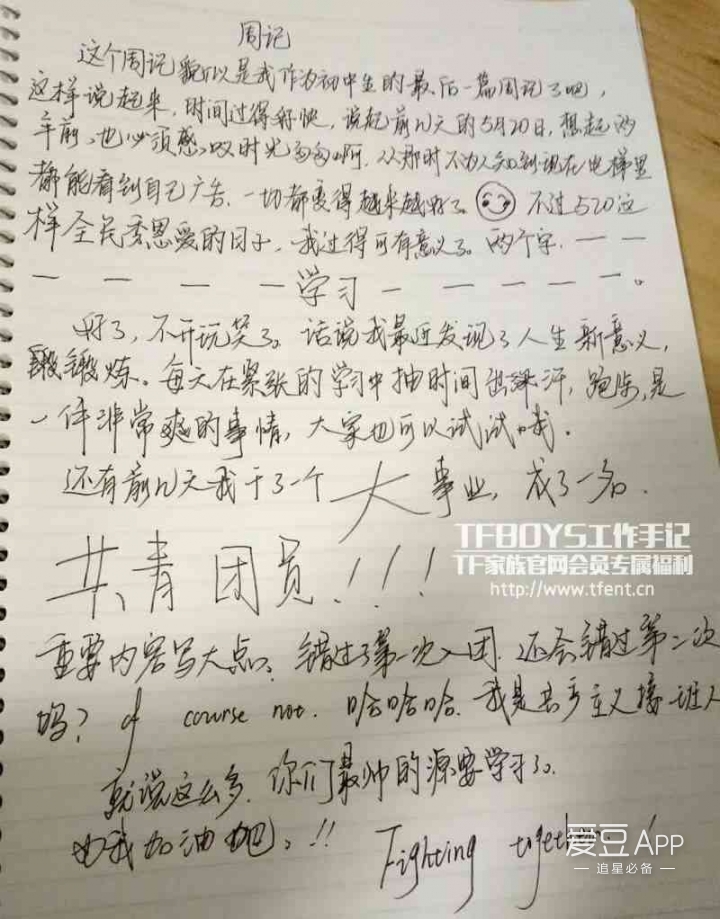 周记
这个周记貌似是我作为初中生的最后一篇周记了吧,
这样说起来,时间过得好快,说起前几天的5月20日,想起两
年前,也必须感叹时光匆匆啊,从那时不为人知到现在电梯里
都能看到自己广告,一切都变得越来越好了。不过520这
样全民秀恩爱的日子,我过得可有意义了。两个字,一一
一 一 一 一学习一 一 一 一 一 一。
好了,不开玩笑了。话说我最近发现了人生新意义,
锻炼。每天在紧张的学习中抽时间出深汗,跑步,是
一件非常爽的事情,大家也可以试试哦。
还有前几天我干了一个大事业,成了一名.
共青团员!!!
TFBOYS工作手记
TF家族官网会员专属福利
http://www.tfent.cn
重要内容写大点。错过了第一次入团,还会错过第二次
吗?of course not.哈哈哈.我是共产主义接班人
就说这么多.你们最帅的源要学习了。
为我加油吧。!!Fighting together!
爱豆APP
追星必备